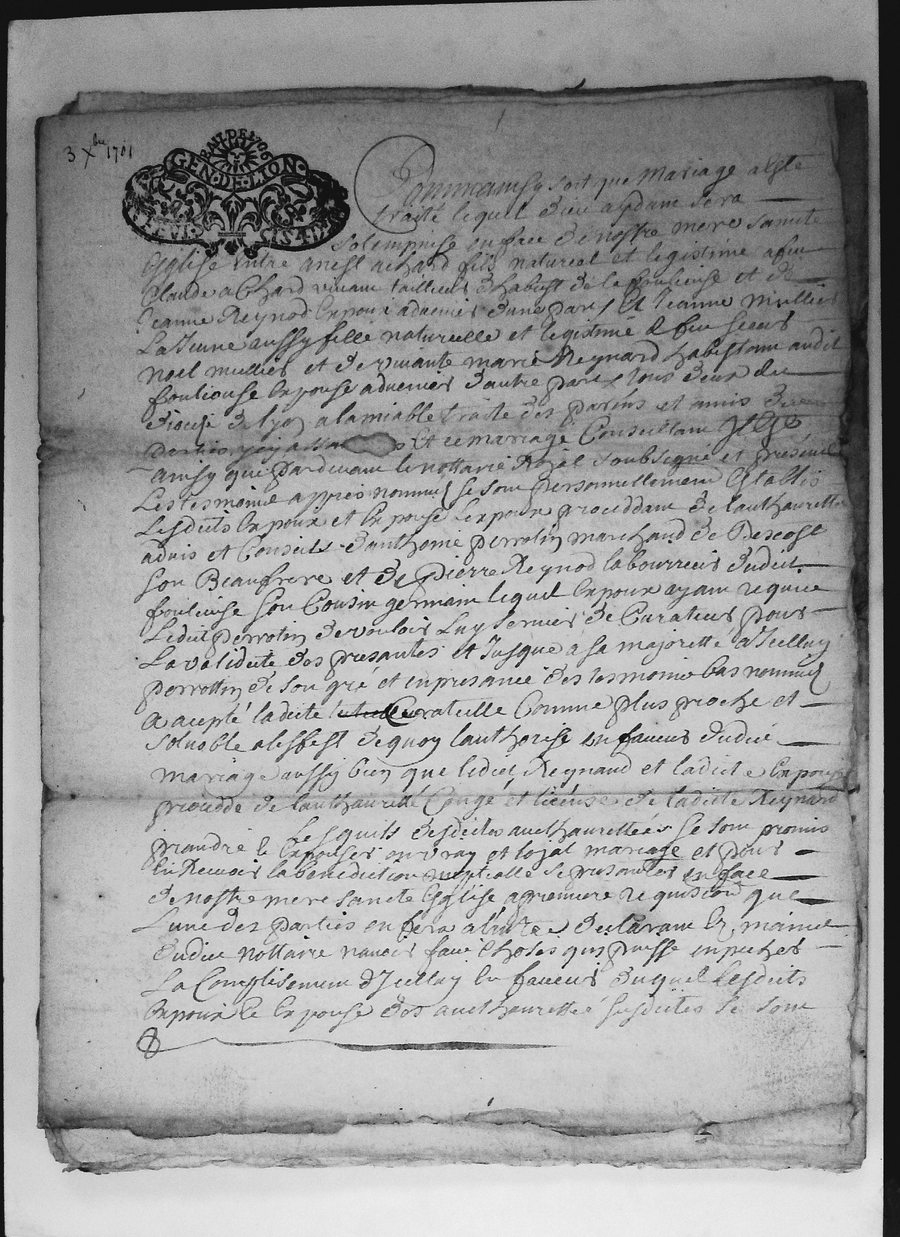 3 Xbre 1701
GEN·DE·LION
Comme ainsy soit que mariage a esté
traité lequel Dieu aydant sera
solempnisé en face de nostre mere saincte
Eglise entre Anest Achard fils naturel et legistime a feu
Claude Achard vivant tailleur d'habist de la fouliouse et de
Jeanne Reynod Expoux advenier d'une part Et Jeanne mullier
La Jeune aussy fille naturelle et legistime de feu sieur
noel mullier et de vivante marie Reynard habistant audit
fouliouse Expouse advenier d'autre part tous deux du
diocese de lyon a lamiable traité des parens et amis des
parties Et ce mariage Consultant
ainsy que pardevant le nottaire Royal soubsigné et présent
Les tesmoins appres nommés se sont personnellement Establis
Lesdits Expoux et Expouse Lexpoux proceddant de l'authaurette
advis et Conseils d'anthome perrotin marchand de
son Beaufrere et de pierre Reynod labourreur dudit
fouliouse son Cousin germain lequel Expoux ayant requice
Ledit perrotin de vouloir Luy servier de Curateur pour
La validete des presantes et Jusque a sa majorette a Jcelluy
perrottin de son gré et en presance des tesmoins bas nommés
a acepté ladicte Curatelle Comme plus proche et
solvable a lesfest de quoy lauthorise en faveur dudit
mariage aussy bien que ledict Reynaud et ladicte Expouse
procedde de l'authauretté Congé et license de ladicte Reynard
Lesquels desdictes aucthaurettées se sont promis
priandre Expouser en vray et loyal mariage et pour
En Recevoir la benediction nuptialle se presanter en face
de nostre mere saincte Eglise a premiere requision que
L'une des parties en fera a lautre declarant Es mains
dudict nottaire navoir faict choses quy puisse enpecher
La Complisement d'Jcelluy En faveur duquel Lesdits
Expoux Et Expouse des aucthauretté susdictes se sont